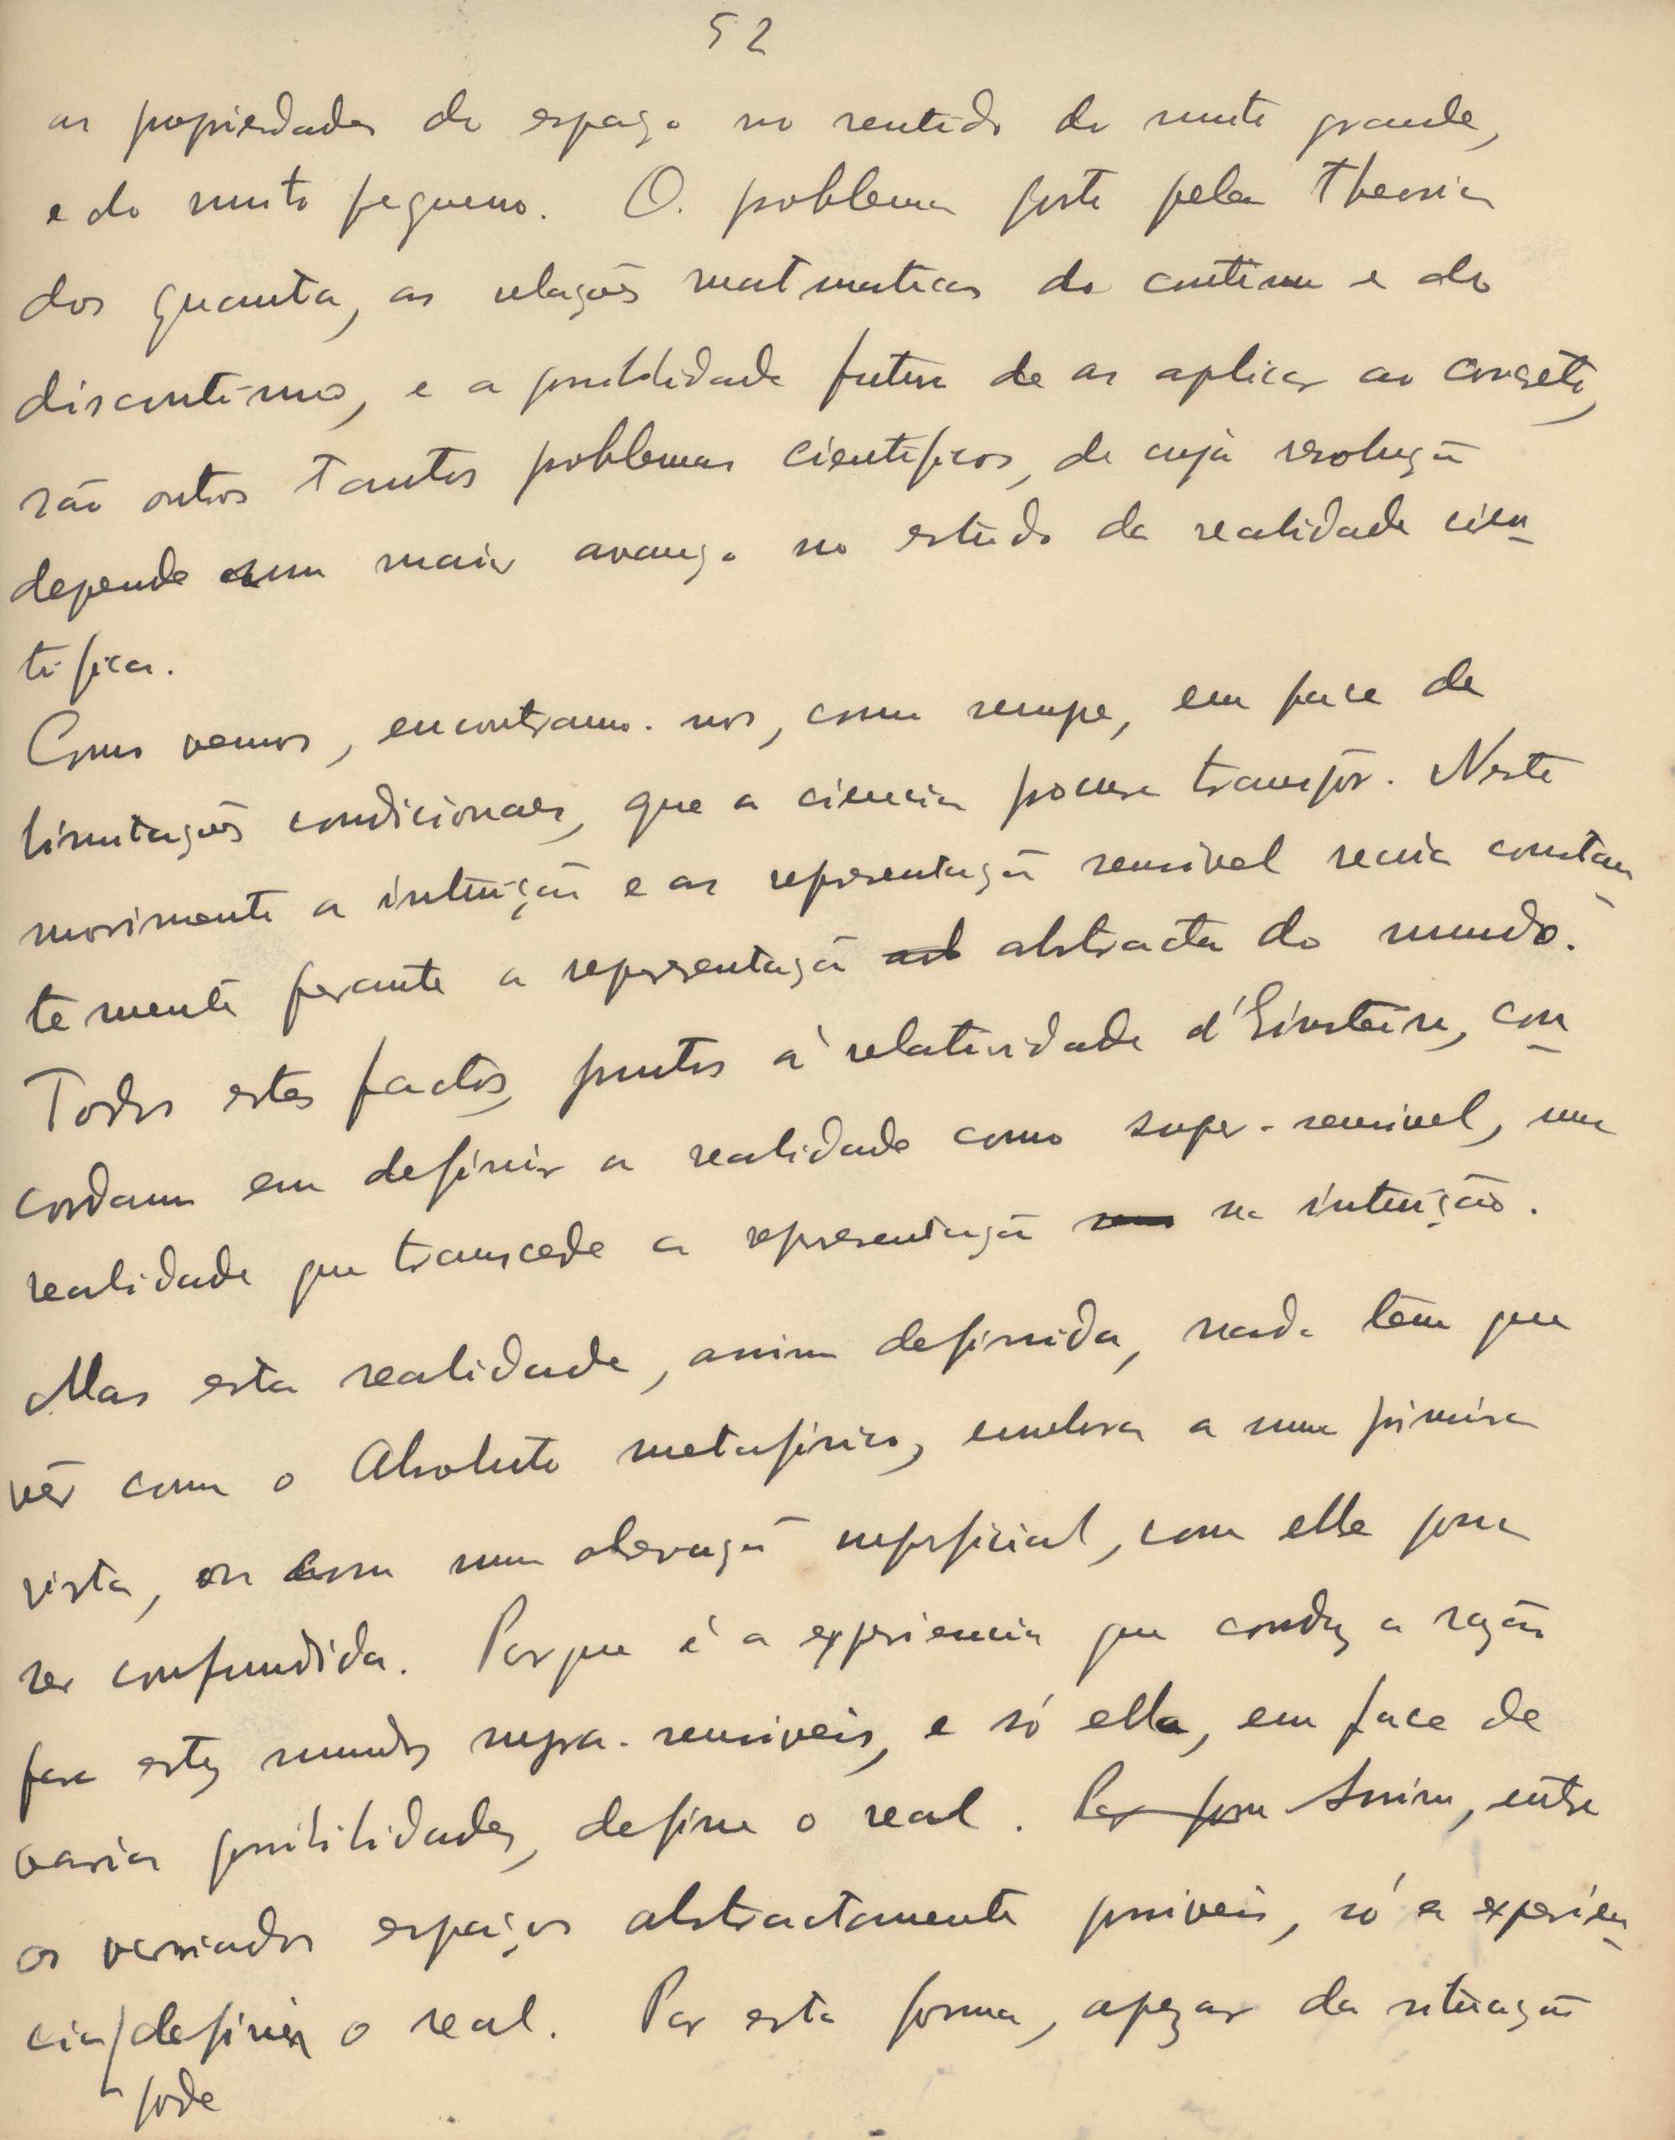 52
as propriedades do espaço no sentido do muito grande,
e do muito pequeno. O problema posto pela theoria
dos quanta, as relações matematicas do continuo e do
discontinuo, e a possibilidade futura de as aplicar ao concreto,
são outros tantos problemas cientificos, de cuja resolução
depende um maior avanço no estudo da realidade cien-
tifica.
Como vemos, encontramo-nos, como sempre, em face de
limitações condicionaes, que a ciencia procura transpôr. Neste
movimento a intuição e as representação sensivel recúa constan-
temente perante a representação abstracta do mundo.
Todos estes factos, juntos á relatividade d'Einstein, con-
cordam em definir a realidade como super-sensivel, uma
realidade que transcede a representação na intuição.
Mas esta realidade, assim definida, nada têm que
vêr com o Absoluto metafisico, embora a uma primeira
vista, ou com uma observação superficial, com elle possa
ser confundida. Porque é a experiencia que conduz a razão
para estes mundos supra-sensiveis, e só ella, em face de
varias possibilidades, define o real. Por fora Assim, entre
os variados espaços abstractamente possiveis, só a experien-
cia pode definir o real. Por esta forma, apezar da situação